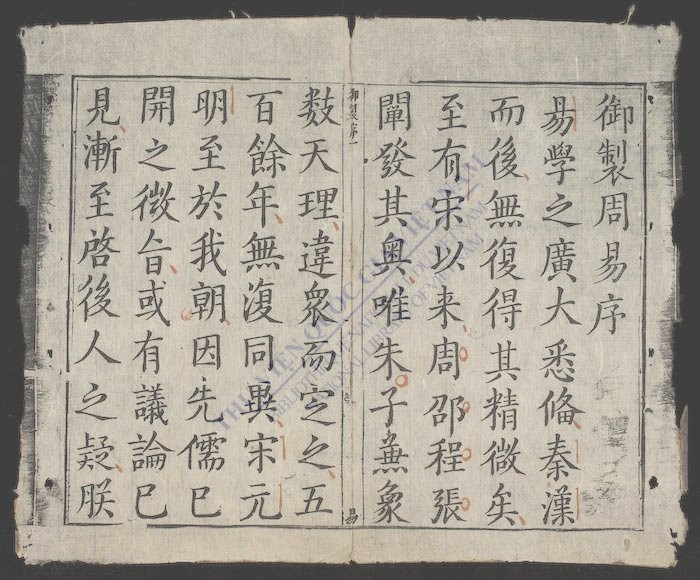 御製周易序
易學之廣大悉俻秦漢
而後無復得其精微矣
至有宋以来周邵程張
闡發其奥唯朱子兼象
御製序一
易
数天理違衆而定之五
百餘年無復同異宋元
明至於我朝因先儒已
開之微㫖或有議論已
見漸至啓後人之疑朕
THƯ VIỆN QUỐC GIA VIỆT NAM
BIBLIOTHÈQUE NATIONALE DU VIETNAM
NATIONAL LIBRARY OF VIETNAM